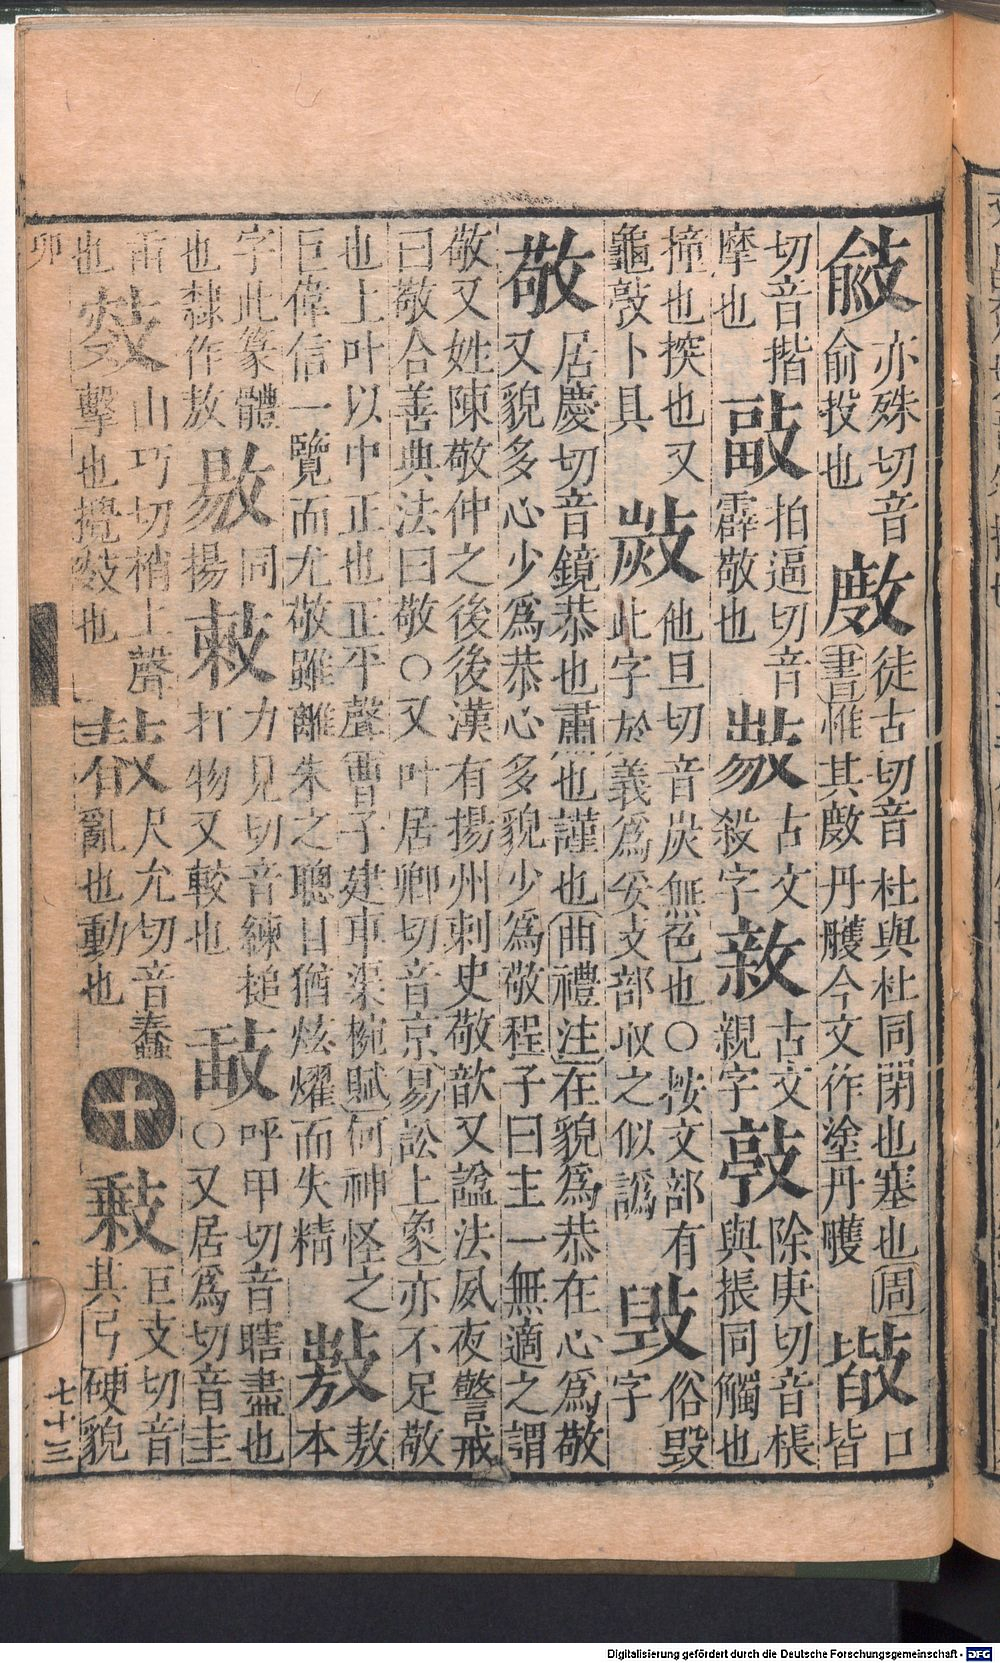 㪗亦殊切音俞投也 敷徒古切音杜與杜同閉也塞也周書惟其敷丹雘今文作塗丹雘 䜁口皆
切音揩摩也 㪤拍逼切音霹敬也 古文殺字 古文親字 㪥除庚切音棖與振同觸也
撞也揬也又龜㪥卜具 㪫他旦切音炭無色也○按文部有此字於義爲妥攴部收之似譌 㪷俗毀字
敬居慶切音鏡恭也肅也謹也曲禮注在貌爲恭在心爲敬
又貌多心少爲恭心多貌少爲敬程子曰主一無適之謂
敬又姓陳敬仲之後後漢有揚州刺史敬歆又諡法夙夜警戒
曰敬合善典法曰敬○又叶居卿切音京易訟上象亦不足敬
也上叶以中正也正平聲曹子建車渠椀賦何神怪之
巨偉信一覽而尤敬雖離朱之聰目猶炫燿而失精 敖本
字此篆體也隸作敖 敭同揚 㪝力見切音練搥打物又較也 㪉呼甲切音瞎盡也○又居爲切音圭
也擊也攪㪇也 山巧切梢上聲 尺允切音蠢亂也動也
十
巨支切音其弓硬貌
卯
七十三
Digitalisierung gefördert durch die Deutsche Forschungsgemeinschaft - DFG